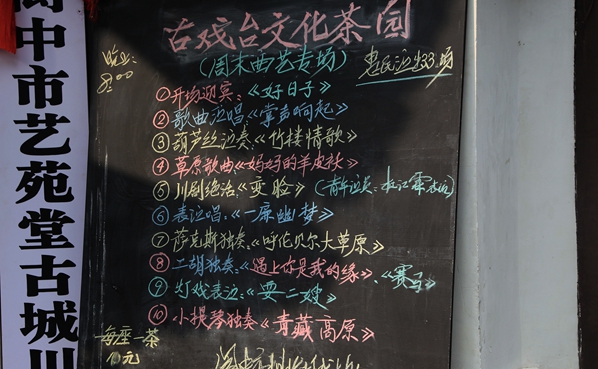 中市艺苑堂古城川
古戏台文化茶园
晚上
8:00
(周末曲艺专场)
惠民演出33场
①开场迎宾:《好日子》
②歌曲演唱:《掌声响起》
③葫芦丝演奏:《竹楼情歌》
④草原歌曲《妈妈的羊皮袄》
⑤川剧绝活:《变脸》(青年演员:
⑥表演唱:《一帘幽梦》
⑦萨克斯独奏:《呼伦贝尔大草原》
⑧二胡独奏:《遇上你是我的缘》、《赛马》
⑨灯戏表演:《耍二嫂》
⑩小提琴独奏《青藏高原》
每座一茶
10元